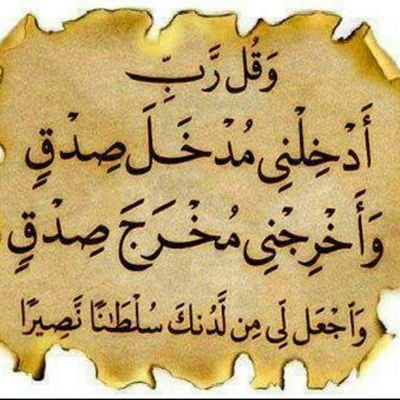 وَقُل رَّبِّ
أَدْخِلْنِي مُدْخَلَ صِدْقٍ
وَأَخْرِجْنِي مُخْرَجَ صِدْقٍ
وَٱجْعَل لِّي مِن لَّدُنكَ سُلْطَـٰنًا نَّصِيرًا